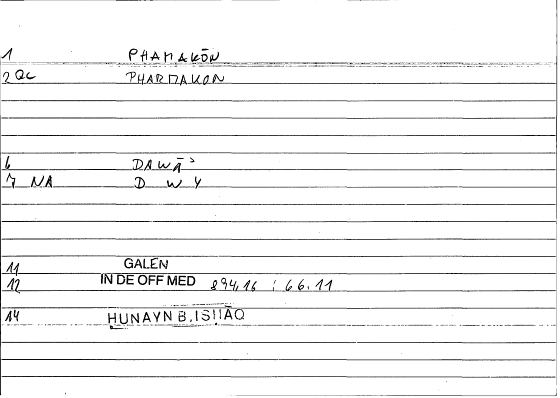 1 PHAMAKŌN
2 QC PHARMAKON
6 DAWĀʾ
7 NA D W Y
11 GALEN
12 IN DE OFF MED 894,16 : 66.11
14 ḤUNAYN B. ISḤĀQ